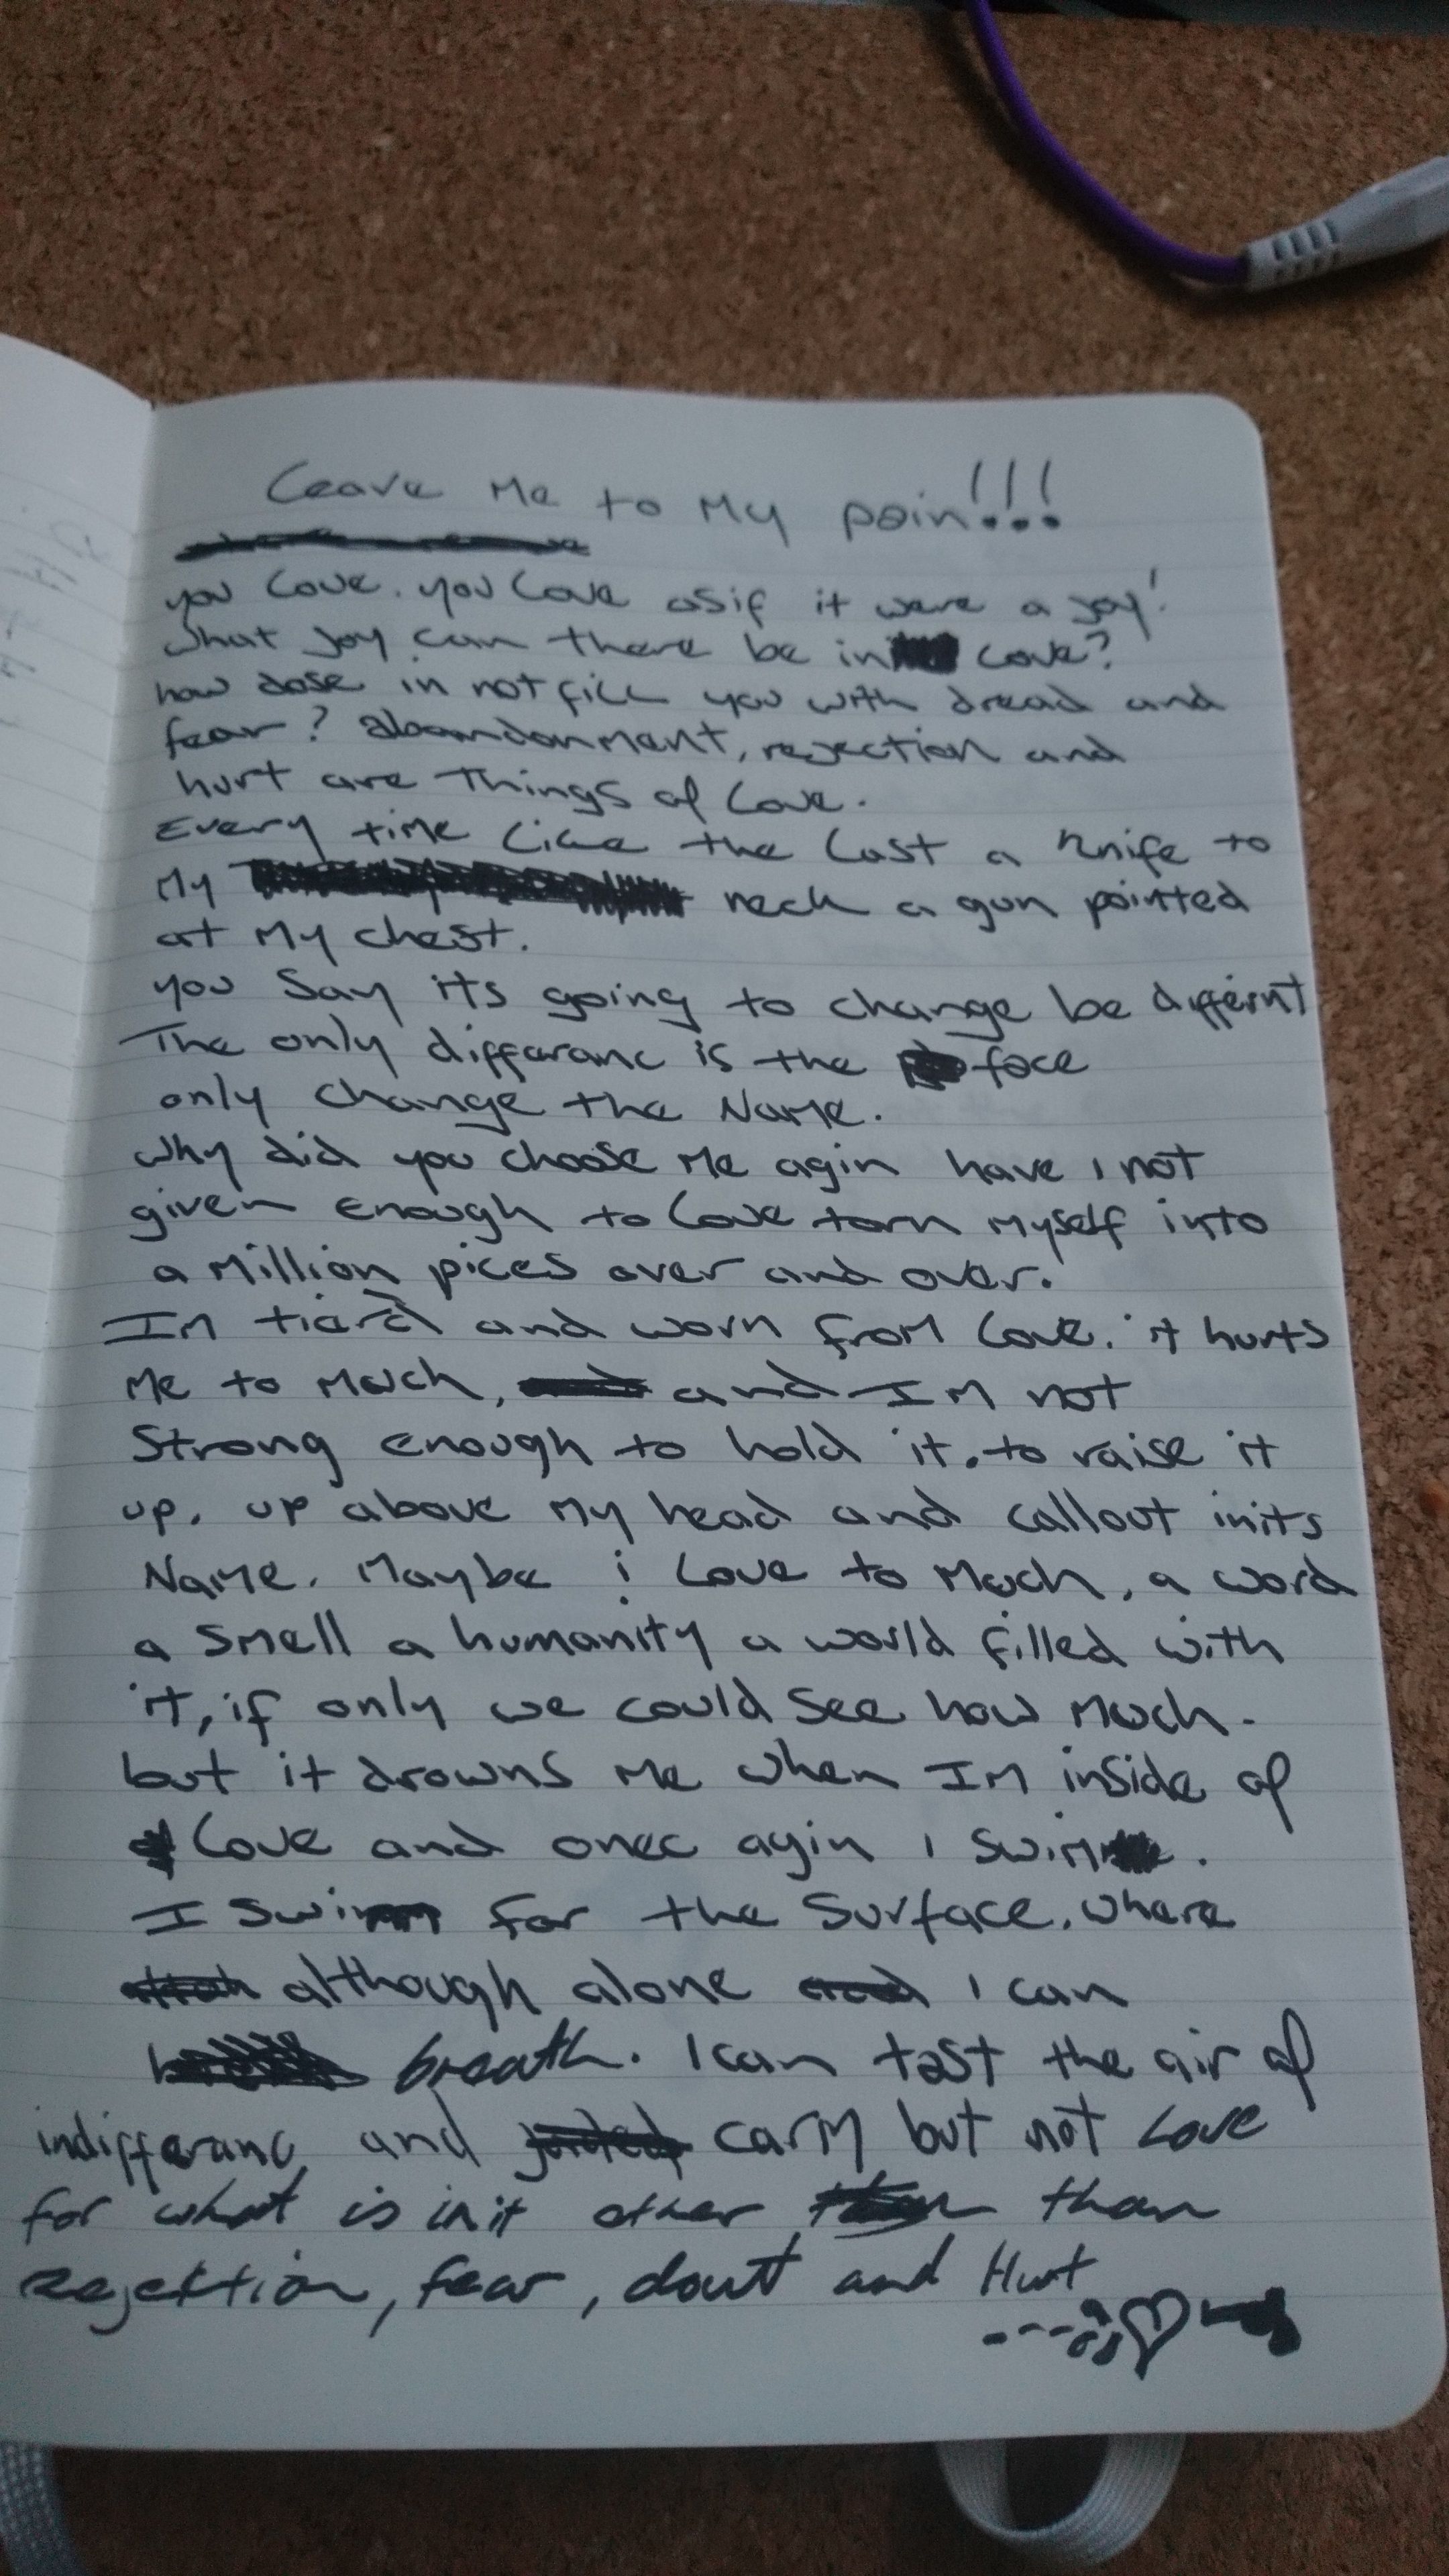 Leave Me to My pain!!!
you love. you love asif it were a joy!
what joy can there be in love?
how dose in not fill you with dread and
fear? abandonment, rejection and
hurt are things of love.
Every time like the last a knife to
My neck a gun pointed
at My chest.
you say its going to change be differnt
The only differanc is the face
only change the Name.
why did you choose Me agin have i not
given enough to love torn Myself into
a Million pices over and over.
Im tierd and worn from love. it hurts
Me to Much, and Im not
Strong enough to hold it. to raise it
up. up above My head and callout inits
Name. Maybe i love to Much, a word
a smell a humanity a world filled with
it, if only we could see how Much.
but it drowns Me when Im inside of
love and onec agin i swim.
I swim for the surface. where
although alone i can
breath. I can tast the air of
indifferanc and carm but not love
for what is init other than
rejektion, fear, dout and Hurt